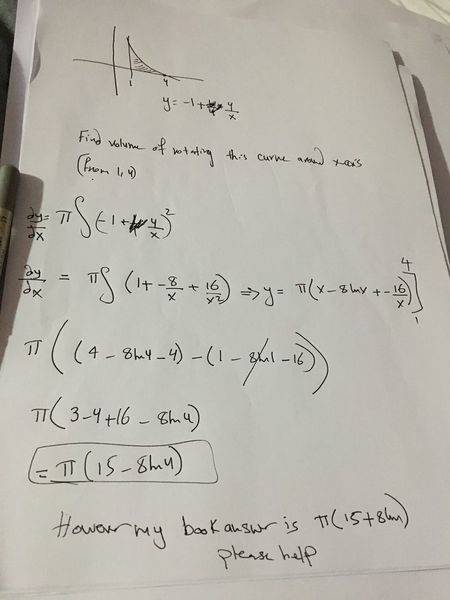 1 4
y = -1 + 4/x
Find volume of rotating this curve around x-axis
(from 1, 4)
∂y/∂x = π∫(-1 + 4/x)²
∂y/∂x = π∫(1 + -8/x + 16/x²) ⇒ y = π(x - 8lnx + -16/x)]₁⁴
π((4 - 8ln4 - 4) - (1 - 8ln1 - 16))
π(3 - 4 + 16 - 8ln4)
= π(15 - 8ln4)
However my book answer is π(15+8ln)
please help